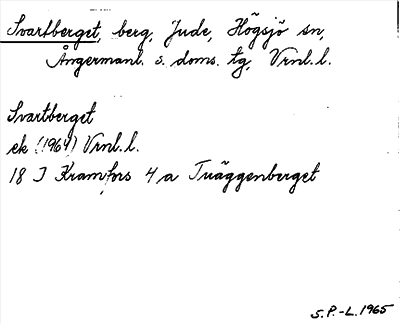 Svartberget, berg, Jude, Högsjö sn,
Ångermanl. s. doms. tg, Vrnl. l.
Svartberget
ek (1964) Vrnl. l.
18 J Kramfors 4 a Tväggenberget
S.P.-L. 1965